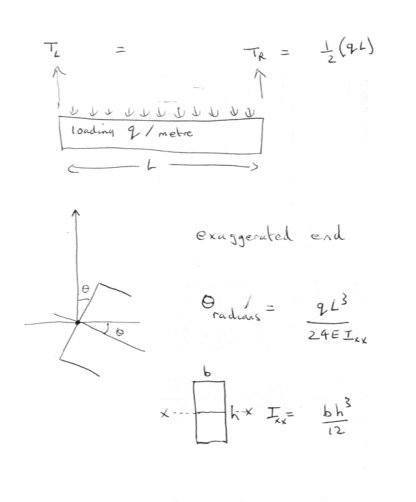 T_L = T_R = 1/2 (qL)
loading q / metre
L
exaggerated end
θ
θ
θ radians = qL³ / 24EI_xx
b
x h x I_xx = bh³ / 12